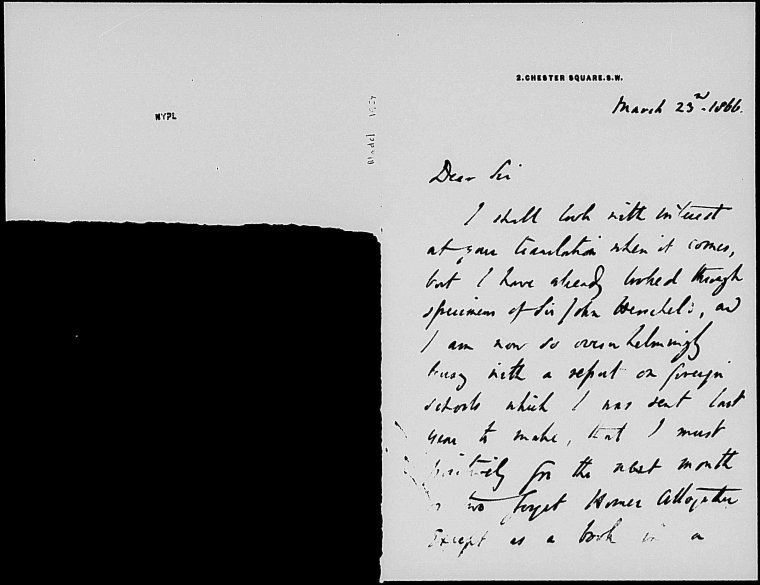 NYPL
2. CHESTER SQUARE. S.W.
March 23rd. 1866.
Dear Sir
I shall look with interest
at your translation when it comes,
but I have already looked through
specimens of Sir John Herschel's, and
I am now so overwhelmingly
busy with a report on foreign
schools which I was sent last
year to make, that I must
positively for the next month
or two forget Homer altogether
except as a book in a